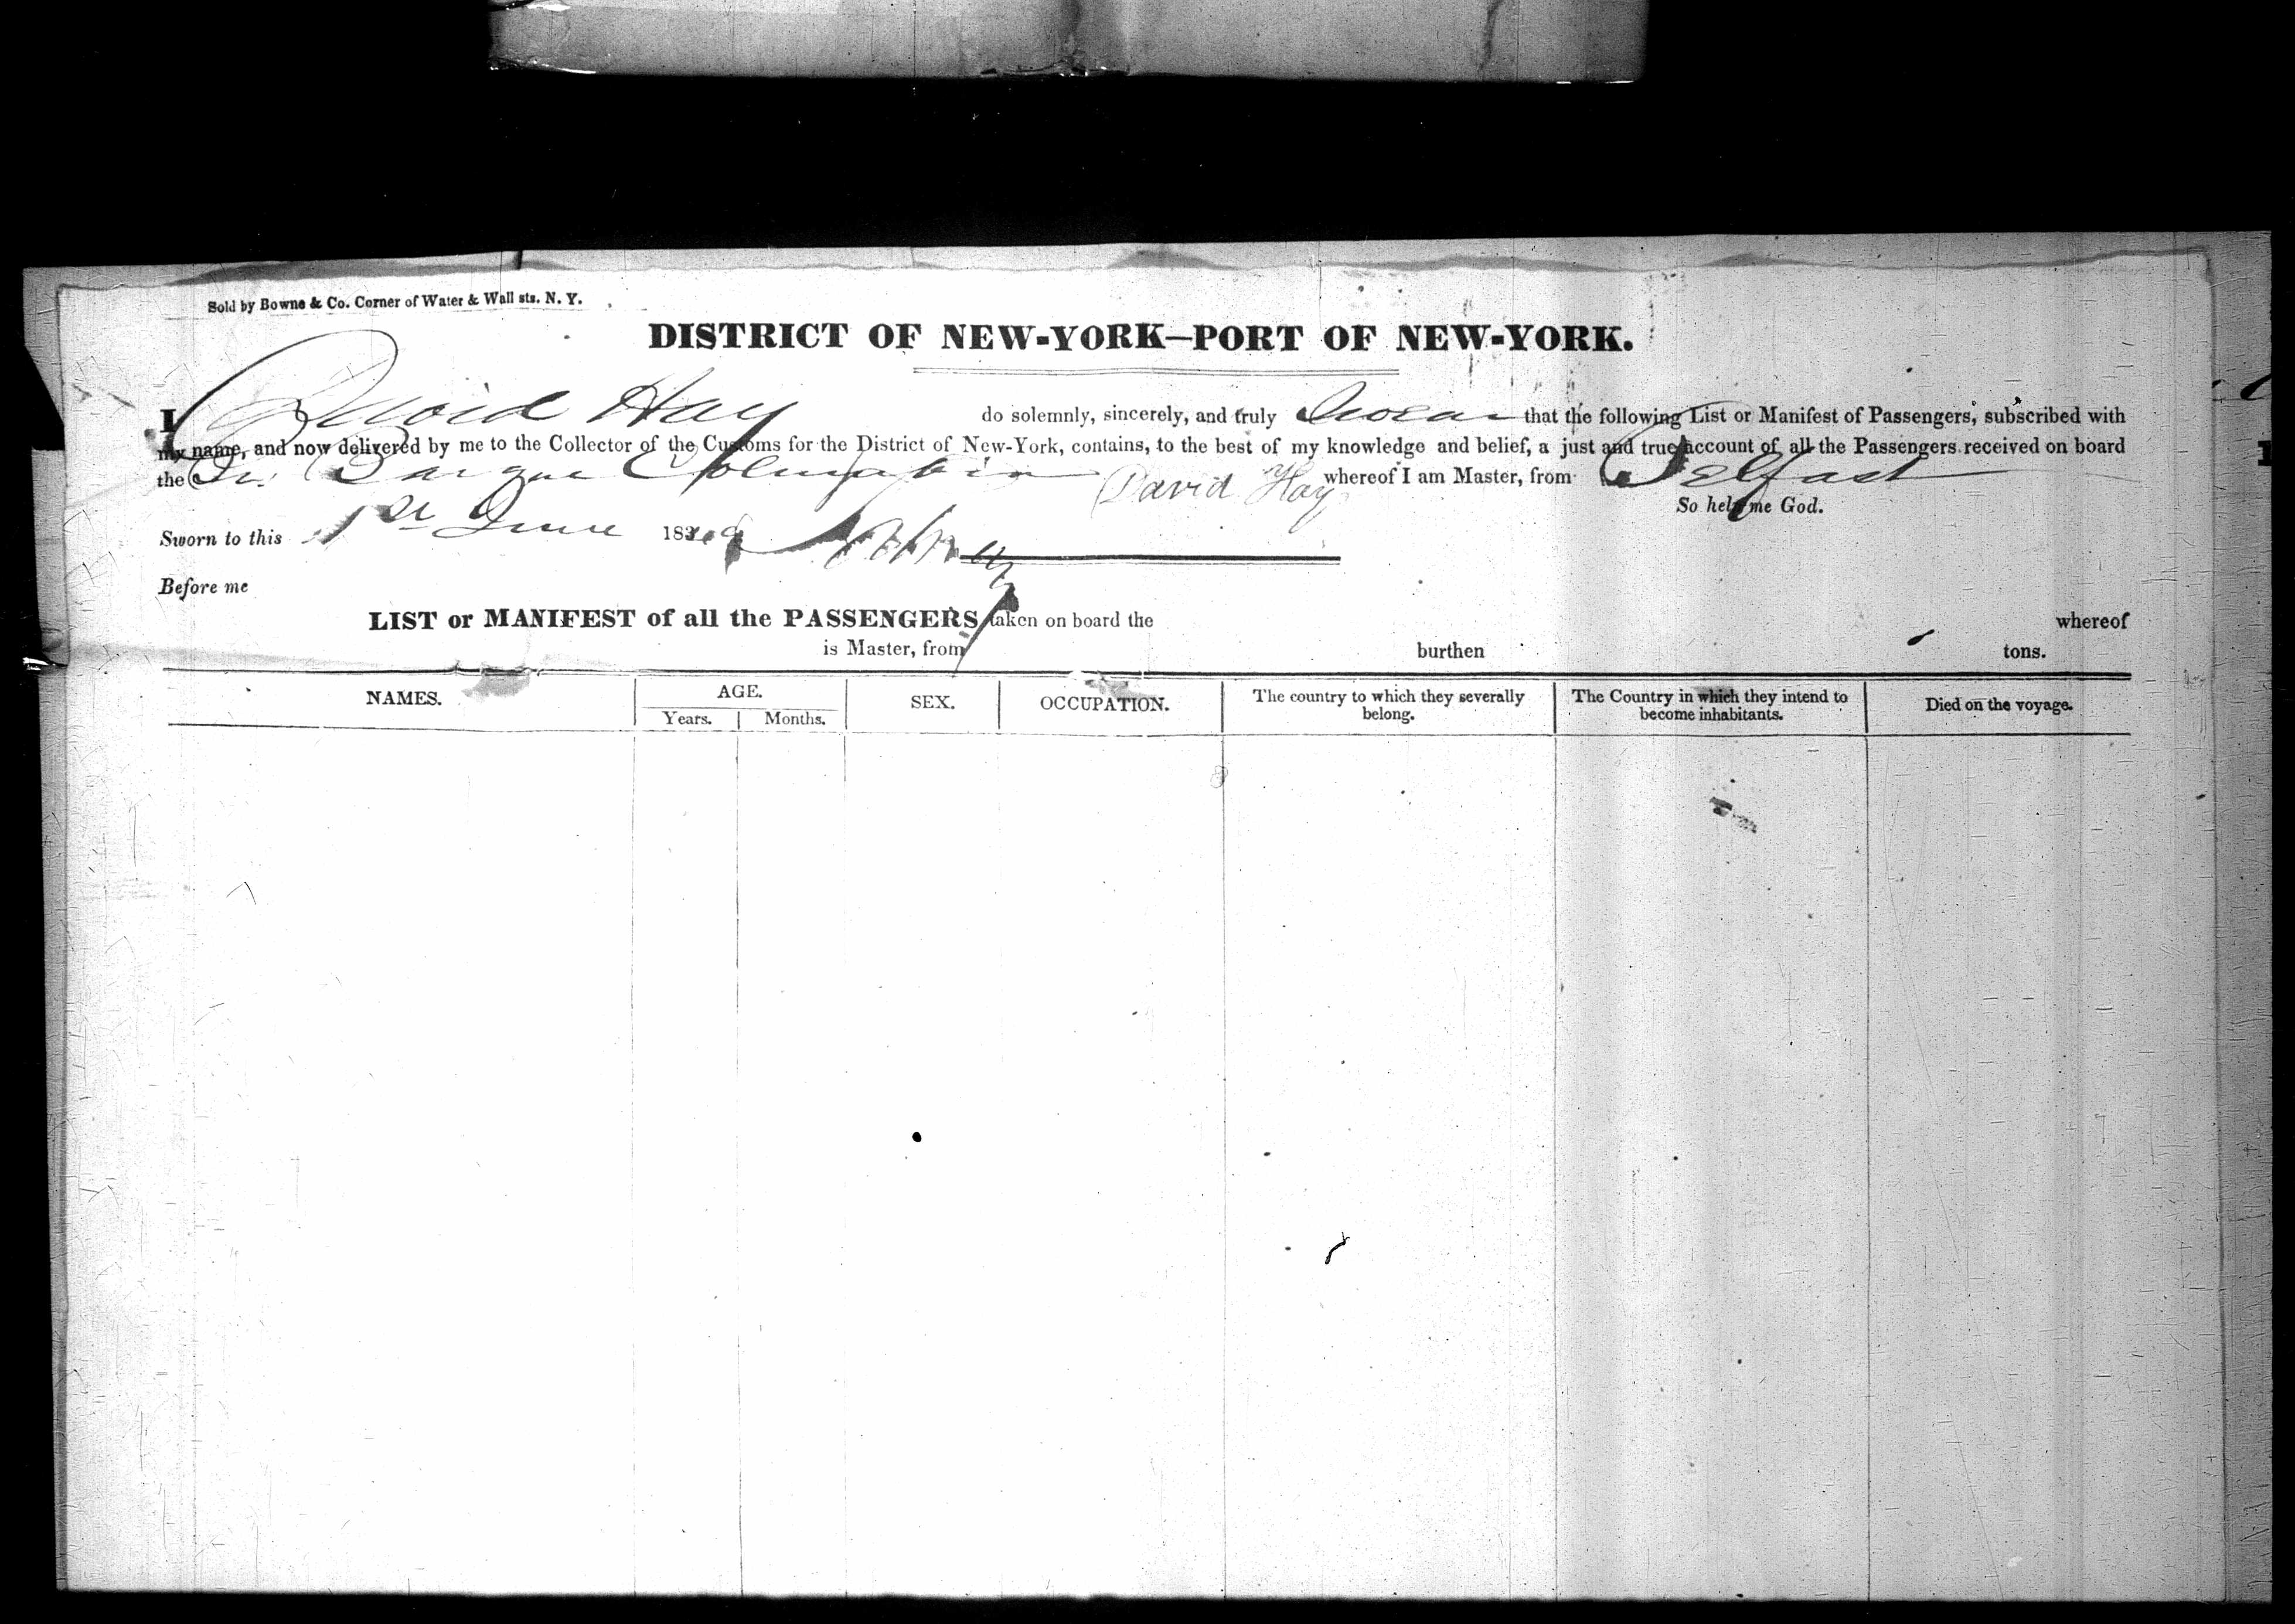 Sold by Bowne & Co. Corner of Water & Wall sts. N. Y.
DISTRICT OF NEW-YORK—PORT OF NEW-YORK.
I David Hay do solemnly, sincerely, and truly Swear that the following List or Manifest of Passengers, subscribed with
my name, and now delivered by me to the Collector of the Customs for the District of New-York, contains, to the best of my knowledge and belief, a just and true account of all the Passengers received on board
the Br. Barque Columbia whereof I am Master, from Belfast
David Hay
So help me God.
Sworn to this 1st June 183
Before me
LIST or MANIFEST of all the PASSENGERS taken on board the whereof
is Master, from burthen tons.
NAMES. AGE. SEX. OCCUPATION. The country to which they severally belong. The Country in which they intend to become inhabitants. Died on the voyage.
Years. Months.